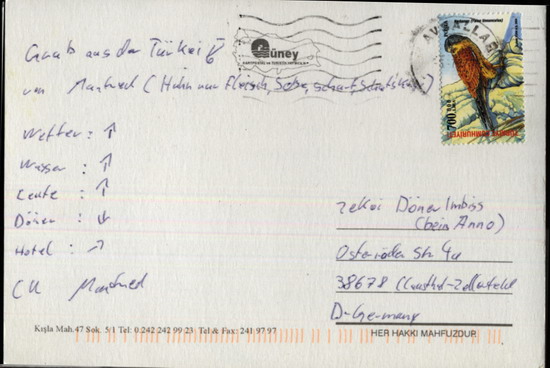 Gruß aus der Türkei
von Manfred (Huhn von Fleisch, Soße, scharf, Schafskäse)
Wetter: ↑
Wasser: ↑
Leute: ↑
Döner: ↓
Hotel: ↗
CU Manfred
Güney
AVSALLAR
700
TÜRKİYE CUMHURİYETİ
Zekai Döner Imbiss
(beim Anno)
Osteröder Str. 4a
38678 Clausthal-Zellerfeld
D-Germany
Kışla Mah. 47 Sok. 5/1 Tel: 0.242 242 99 23 Tel & Fax: 241 97 97
HER HAKKI MAHFUZDUR.